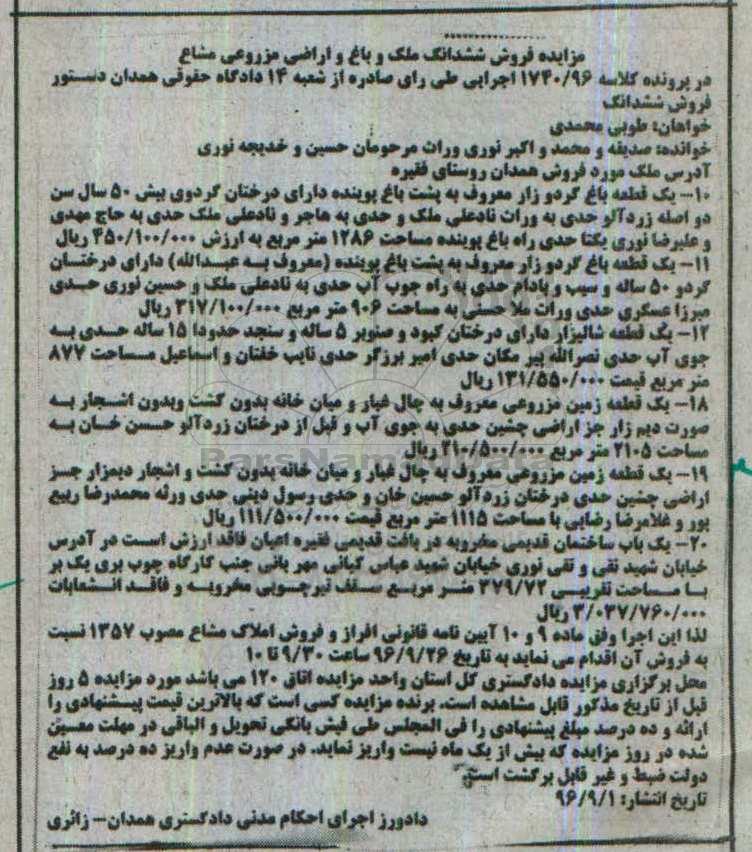 مزایده فروش ششدانگ ملک و باغ و اراضی مزروعی مشاع
در پرونده کلاسه ۱۷۴۰/۹۶ اجرایی طی رای صادره از شعبه ۱۴ دادگاه حقوقی همدان دستور
فروش ششدانگ
خواهان: طوبی محمدی
خوانده: صدیقه و محمد و اکبر نوری وراث مرحومان حسین و خدیجه نوری
آدرس ملک مورد فروش همدان روستای فقیره
۱۰- یک قطعه باغ گردو زار معروف به پشت باغ پوینده دارای درختان گردوی بیش ۵۰ سال سن
دو اصله زردآلو حدی به وراث نادعلی ملک و حدی به هاجر و نادعلی ملک حدی به حاج مهدی
و علیرضا نوری یکتا حدی راه باغ پوینده مساحت ۱۲۸۶ متر مربع به ارزش ۴۵۰/۱۰۰/۰۰۰ ریال
۱۱- یک قطعه باغ گردو زار معروف به پشت باغ پوینده (معروف به عبدالله) دارای درختان
گردو ۵۰ ساله و سیب و بادام حدی به راه جوب آب حدی به نادعلی ملک و حسین نوری حدی
میرزا عسکری حدی وراث ملاحسنی به مساحت ۹۰۶ متر مربع ۳۱۷/۱۰۰/۰۰۰ ریال
۱۲- یک قطعه شالیزار دارای درختان کبود و صنوبر ۵ ساله و سنجد حدودا ۱۵ ساله حدی به
جوی آب حدی نصرالله پیر مکان حدی امیر برزگر حدی نایب خفتان و اسماعیل مساحت ۸۷۷
متر مربع قیمت ۱۳۱/۵۵۰/۰۰۰ ریال
۱۸- یک قطعه زمین مزروعی معروف به چال غیار و میان خانه بدون کشت وبدون اشجار به
صورت دیم زار جز اراضی چشین حدی به جوی آب و قبل از درختان زردآلو حسن خان به
مساحت ۲۱۰۵ متر مربع ۲۱۰/۵۰۰/۰۰۰ ریال
ParsNamadData
۱۹- یک قطعه زمین مزروعی معروف به چال غیار و میان خانه بدون کشت و اشجار دیمزار جز
اراضی چشین حدی درختان زردآلو حسین خان و حدی رسول دینی حدی ورثه محمدرضا ربیع
پور و غلامرضا رضایی با مساحت ۱۱۱۵ متر مربع قیمت ۱۱۱/۵۰۰/۰۰۰ ریال
۲۰- یک باب ساختمان قدیمی مخروبه در بافت قدیمی فقیره اعیان فاقد ارزش است در آدرس
خیابان شهید نقی و تقی نوری خیابان شهید عباس کیانی مهر بانی جنب کارگاه چوب بری یک بر
با مساحت تقریبی ۳۷۹/۷۲ متر مربع سقف تیرچوبی مخروبه و فاقد انشعابات
۳/۰۳۷/۷۶۰/۰۰۰ ریال
لذا این اجرا وفق ماده ۹ و ۱۰ آیین نامه قانونی افراز و فروش املاک مشاع مصوب ۱۳۵۷ نسبت
به فروش آن اقدام می نماید به تاریخ ۹۶/۹/۲۶ ساعت ۹/۳۰ تا ۱۰
محل برگزاری مزایده دادگستری کل استان واحد مزایده اتاق ۱۲۰ می باشد مورد مزایده ۵ روز
قبل از تاریخ مذکور قابل مشاهده است. برنده مزایده کسی است که بالاترین قیمت پیشنهادی را
ارائه و ده درصد مبلغ پیشنهادی را فی المجلس طی فیش بانکی تحویل و الباقی در مهلت معین
شده در روز مزایده که بیش از یک ماه نیست واریز نماید. در صورت عدم واریز ده درصد به نفع
دولت ضبط و غیر قابل برگشت است.
تاریخ انتشار: ۹۶/۹/۱
دادورز اجرای احکام مدنی دادگستری همدان- زائری